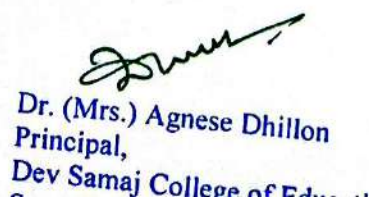 Dr. (Mrs.) Agnese Dhillon
Principal,
Dev Samaj College of